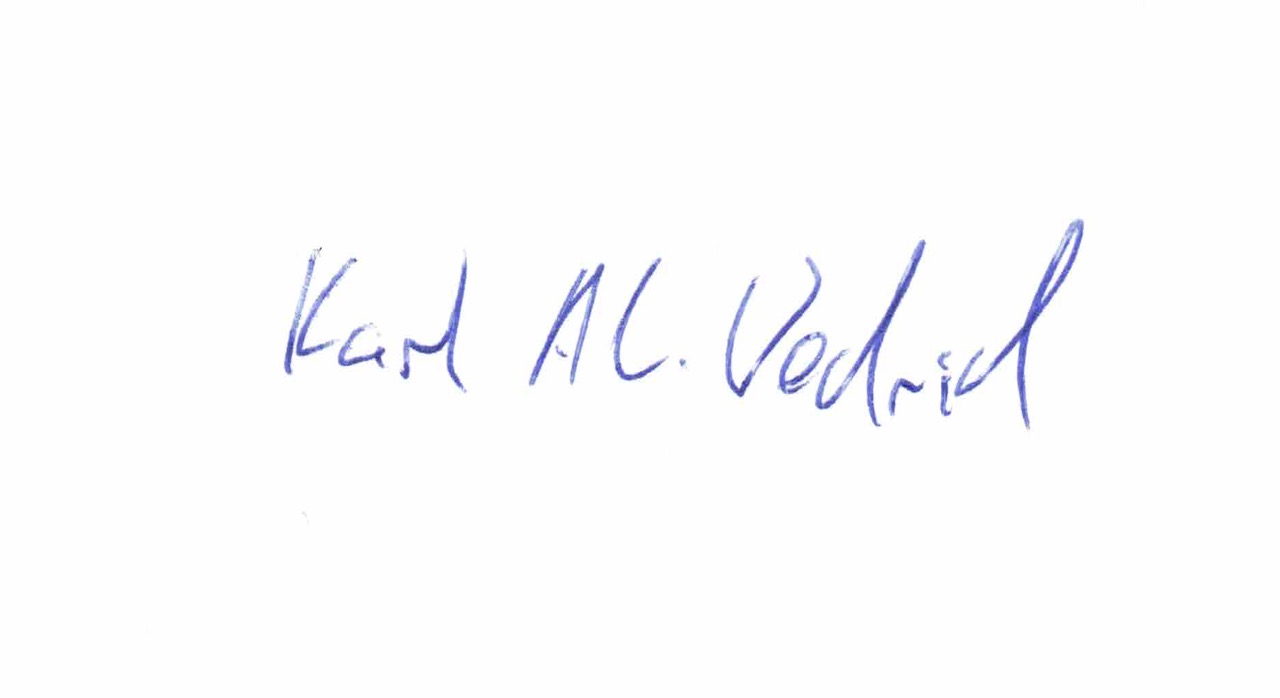 Karl Al. Vedrid